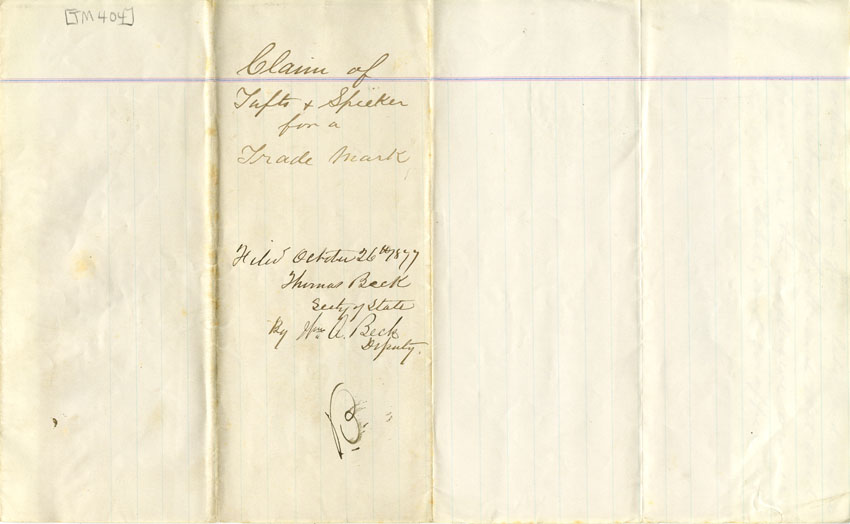 [TM 404]
Claim of
Tufts & Spieker
for a
Trade Mark
Filed October 26th 1877
Thomas Beck
Secty of State
By Wm. A. Beck
Deputy.
B